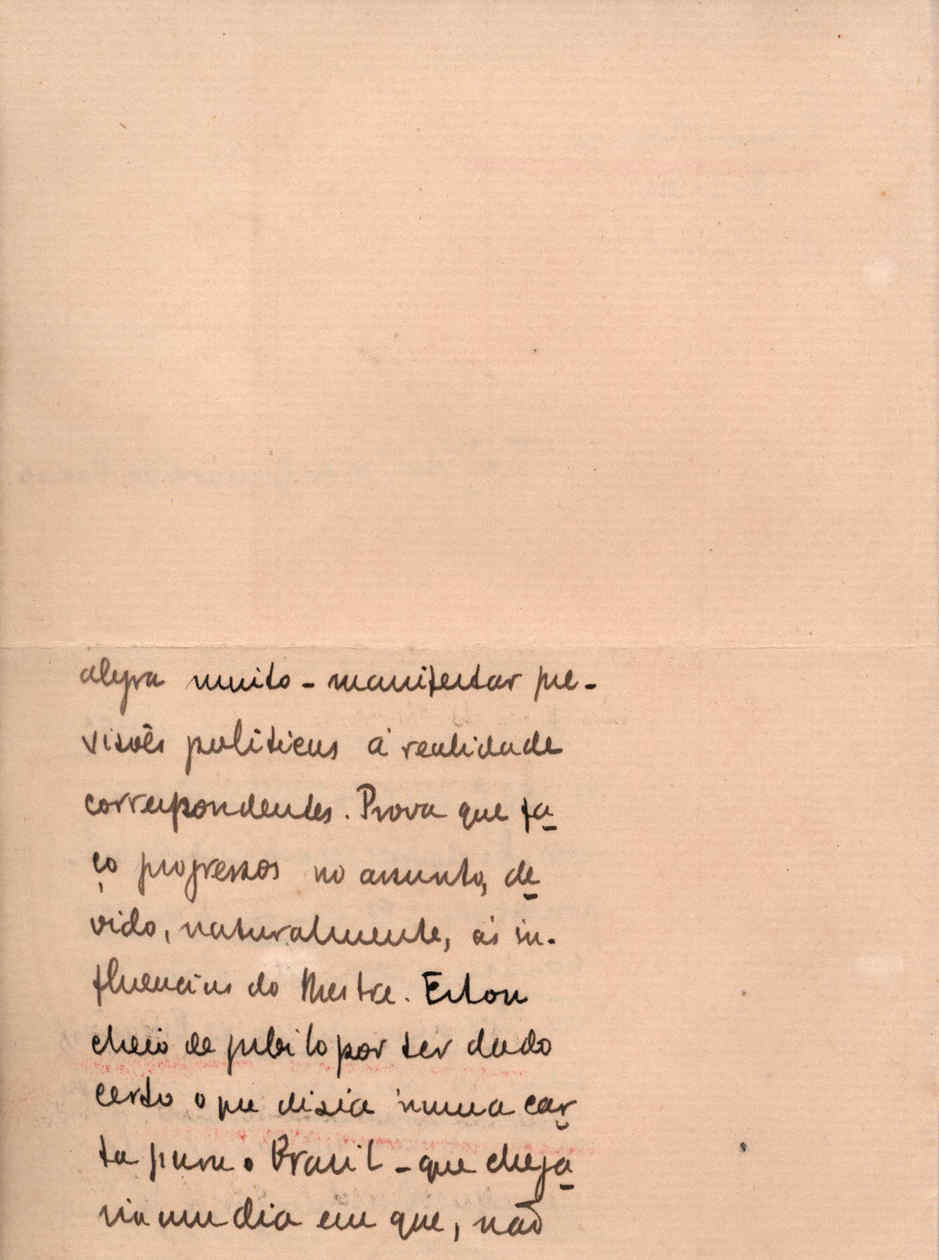 alegra muito - manifestar pre-
visões politicas á realidade
correspondentes. Prova que fa
ço progressos no assunto, de
vido, naturalmente, ás in-
fluencias do Mestre. Estou
cheio de jubilo por ter dado
certo o que disia numa car
ta para o Brasil - que chega
ria um dia em que, não